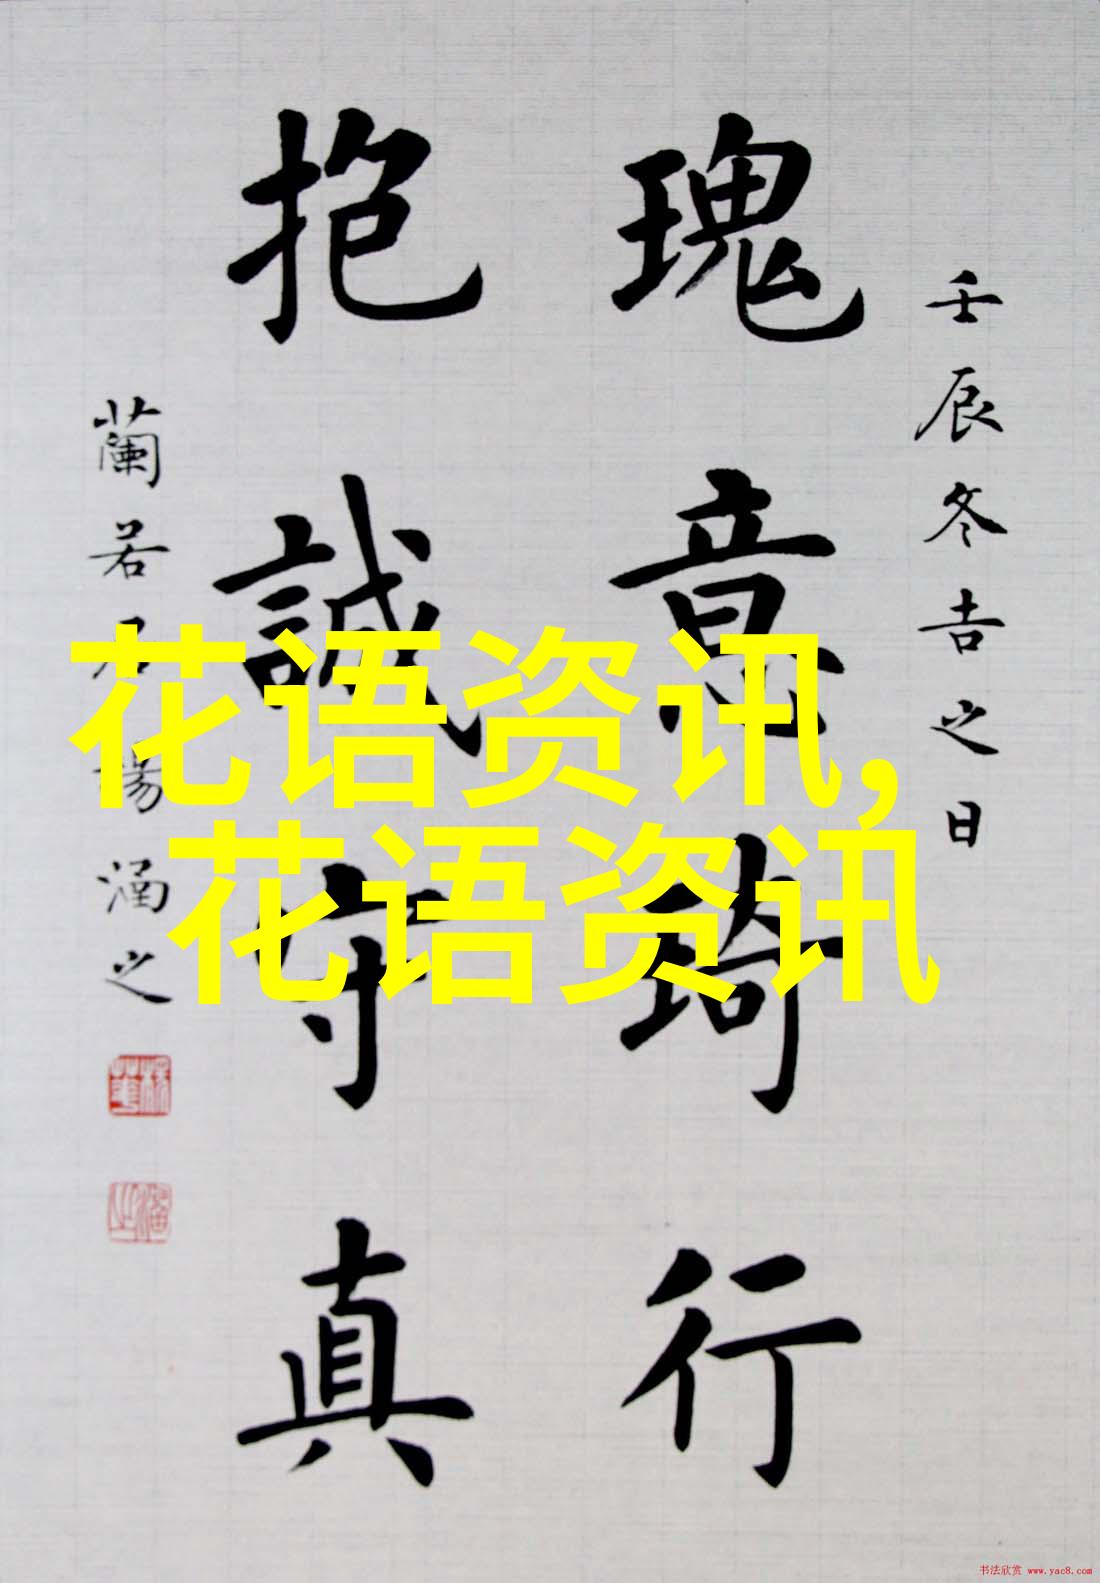 壬辰冬吉之日
瑰意琦行
抱誠守真
蘭若居楊涵之
花语资讯,
花语资讯
书法欣赏 www.yac8.com